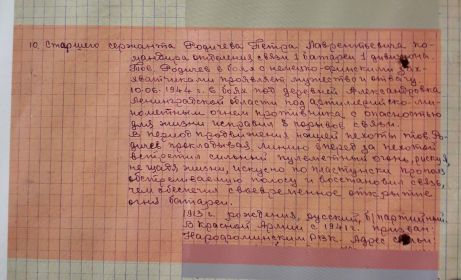 10. Старшего сержанта Родичева Петра Лаврентьевича ко-
мандира отделения связи 1 батареи 1 дивизиона.
Тов. Родичев в боях с немецко-финскими за-
хватчиками проявляет мужество и отвагу.
10.06.1944 г. в боях под деревней Александровка
Ленинградской области под артиллерийско-ми-
нометным огнем противника с опасностью
для жизни исправил порывов связи.
В период продвижения нашей пехоты тов. Ро-
дичев прокладывая линию вперед за пехотой
встретил сильный пулеметный огонь, рискуя,
не щадя жизни, искусно по пластунски прополз
обстреливаемую полосу и восстановил связь,
чем обеспечил своевременное открытие
огня батареи.
1913 г. рождения, русский, б/партийный.
В Красной Армии с 1941 г. призван
Народоминским РВК. Адрес